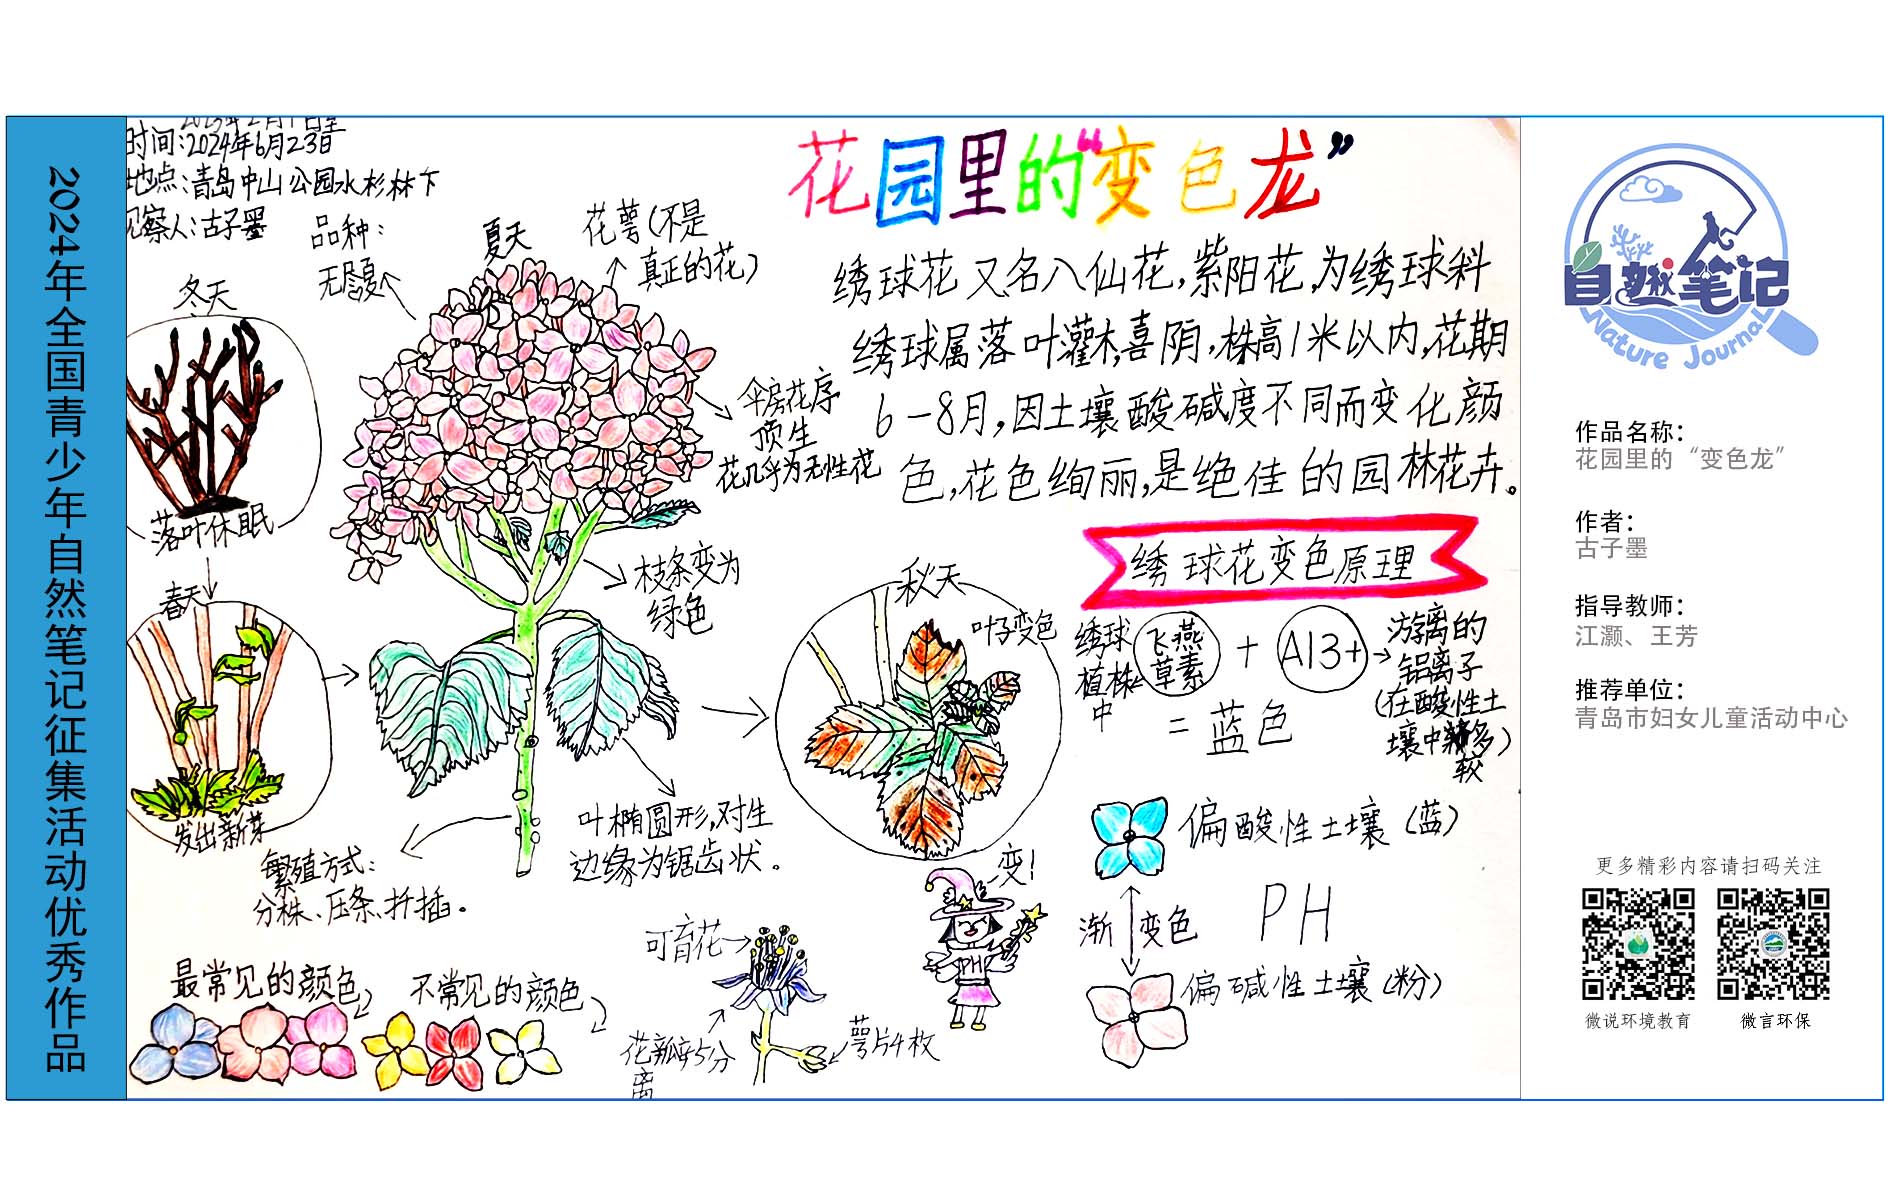 2024年全国青少年自然笔记征集活动优秀作品
时间:2024年6月23日
地点:青岛中山公园水杉林下
观察人:古子墨
花园里的“变色龙”
绣球花又名八仙花,紫阳花,为绣球科
绣球属落叶灌木,喜阴,株高1米以内,花期
6-8月,因土壤酸碱度不同而变化颜
色,花色绚丽,是绝佳的园林花卉。
品种:
无尽夏
夏天
花萼(不是
真正的花)
伞房花序
顶生
花几乎为无性花
冬天
落叶休眠
春天
发出新芽
枝条变为
绿色
秋天
叶子变色
叶椭圆形,对生
边缘为锯齿状。
繁殖方式:
分株、压条、扦插。
绣球花变色原理
绣球
植株
中
飞燕
草素
+
Al3+
游离的
铝离子
(在酸性土
壤中较多)
=蓝色
偏酸性土壤(蓝)
渐变色
PH
偏碱性土壤(粉)
变!
PH
最常见的颜色
不常见的颜色
可育花
花瓣5分
离
萼片4枚
自然笔记
Nature Journal
作品名称:
花园里的“变色龙”
作者:
古子墨
指导教师:
江灏、王芳
推荐单位:
青岛市妇女儿童活动中心
更多精彩内容请扫码关注
微说环境教育
微言环保